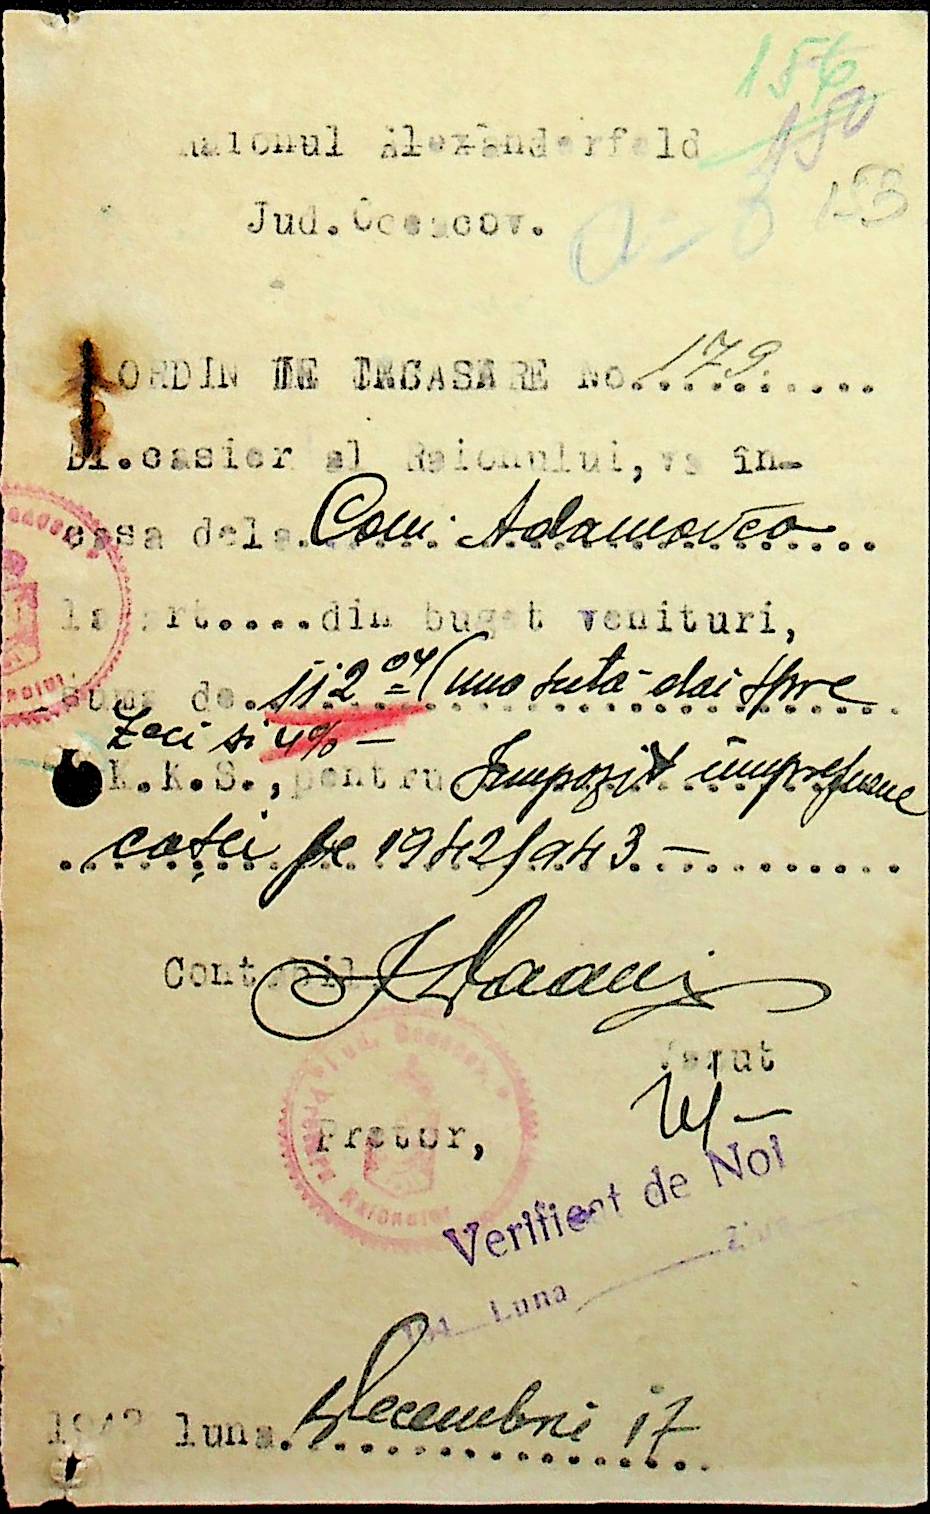 156
150
153
Raionul Alexanderfeld
Jud. Oceacov.
ORDIN DE INCASARE No. 179
Dl. casier al Raionului, va în-
casa dela Com. Adamovca
la art.....din buget venituri,
suma de 112 04 (una suta doi spre
zeci si 4% —
R.K.K.S., pentru Impozit
pe 1942/943 —
Contabil,
Vazut
Pretor,
Verificat de Noi
194 Luna Ziua
1942 luna Decembrie 17